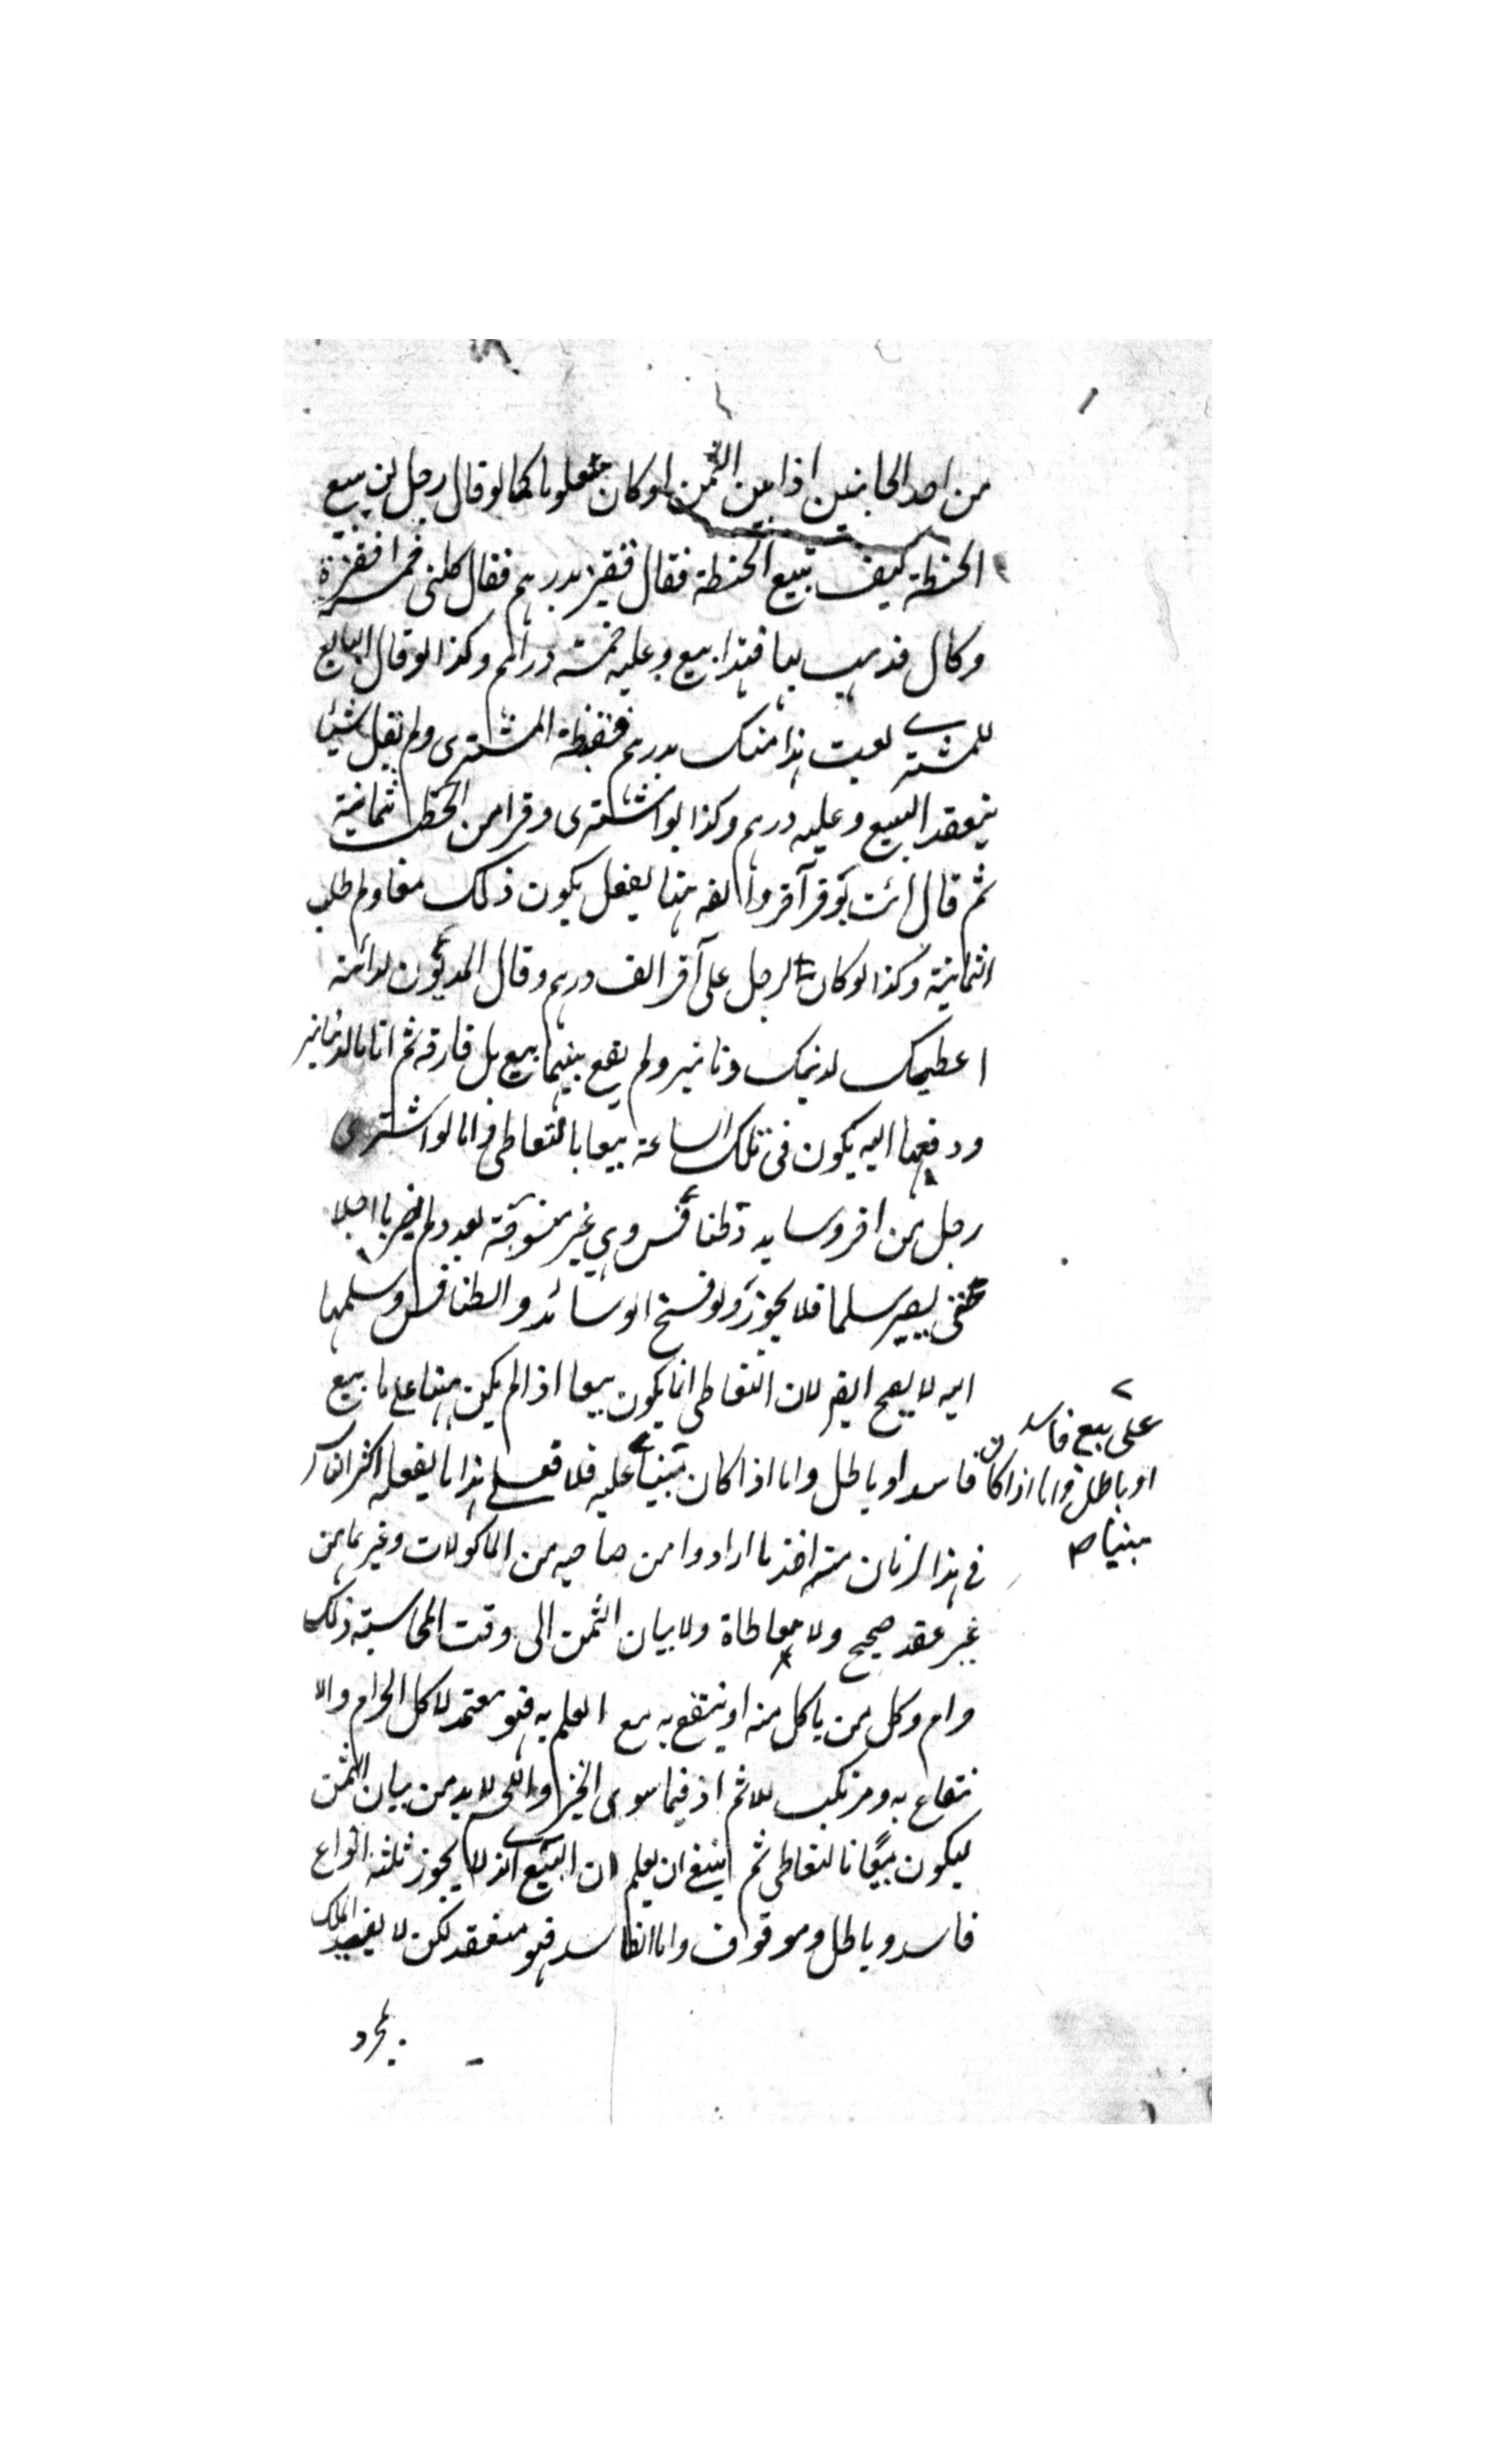 من احد الجانبين اذا بين الثمن او كان معلوما كما لو قال رجل لمن يبيع
الحنطة كيف تبيع الحنطة فقال قفيز بدرهم فقال كلنى خمسة اقفزة
وكال فذهب بها فهذا بيع وعليه خمسة دراهم وكذا لو قال البايع
للمشترى بعت هذا منك بدرهم فقبضه المشترى ولم يقل شيئا
ينعقد البيع وعليه درهم وكذا لو اشترى وقرا من الحطب بثمانية
ثم قال ائت بوقر آخر والقه هنا يفعل يكون ذلك بيعا وله طلب
الثمانية وكذا لو كان لرجل على آخر الف درهم وقال المديون لدائنه
اعطيك لدينك دنانير ولم يقع بينهما بيع بل فارقه ثم اتا بالدنانير
ودفعها اليه يكون فى تلك الساعة بيعا بالتعاطى واما لو اشترى
رجل من آخر وسايد وطنافس وهى غير منسوجة بعد ولم يضربا اجلا
حتى يصير سلما فلا يجوز ولو نسج الوسائد والطنافس وسلمها
اليه لا يصح ايض لان التعاطى انما يكون بيعا اذا لم يكن مبنيا على بيع
فاسد او باطل واما اذا كان مبنيا عليه فلا فعلى هذا ما يفعله اكثر الناس
على بيع فاسد
او باطل واما اذا كان
مبنيا صح
فى هذا الزمان من اخذ ما ارادوا من صاحبه من الماكولات وغيرها من
غير عقد صحيح ولا معاطاة ولا بيان الثمن الى وقت المحاسبة ذلك
حرام وكل من ياكل منه او ينتفع به مع العلم به فهو متعمد لاكل الحرام والا
نتفاع به ومرتكب للاثم اذ فيما سوى الخبز واللحم لا بد من بيان الثمن
ليكون بيعا بالتعاطى ثم ينبغى ان يعلم ان البيع الذى لا يجوز ثلثة انواع
فاسد وباطل وموقوف واما الفاسد فهو منعقد لكن لا يفيد الملك
بمجرد